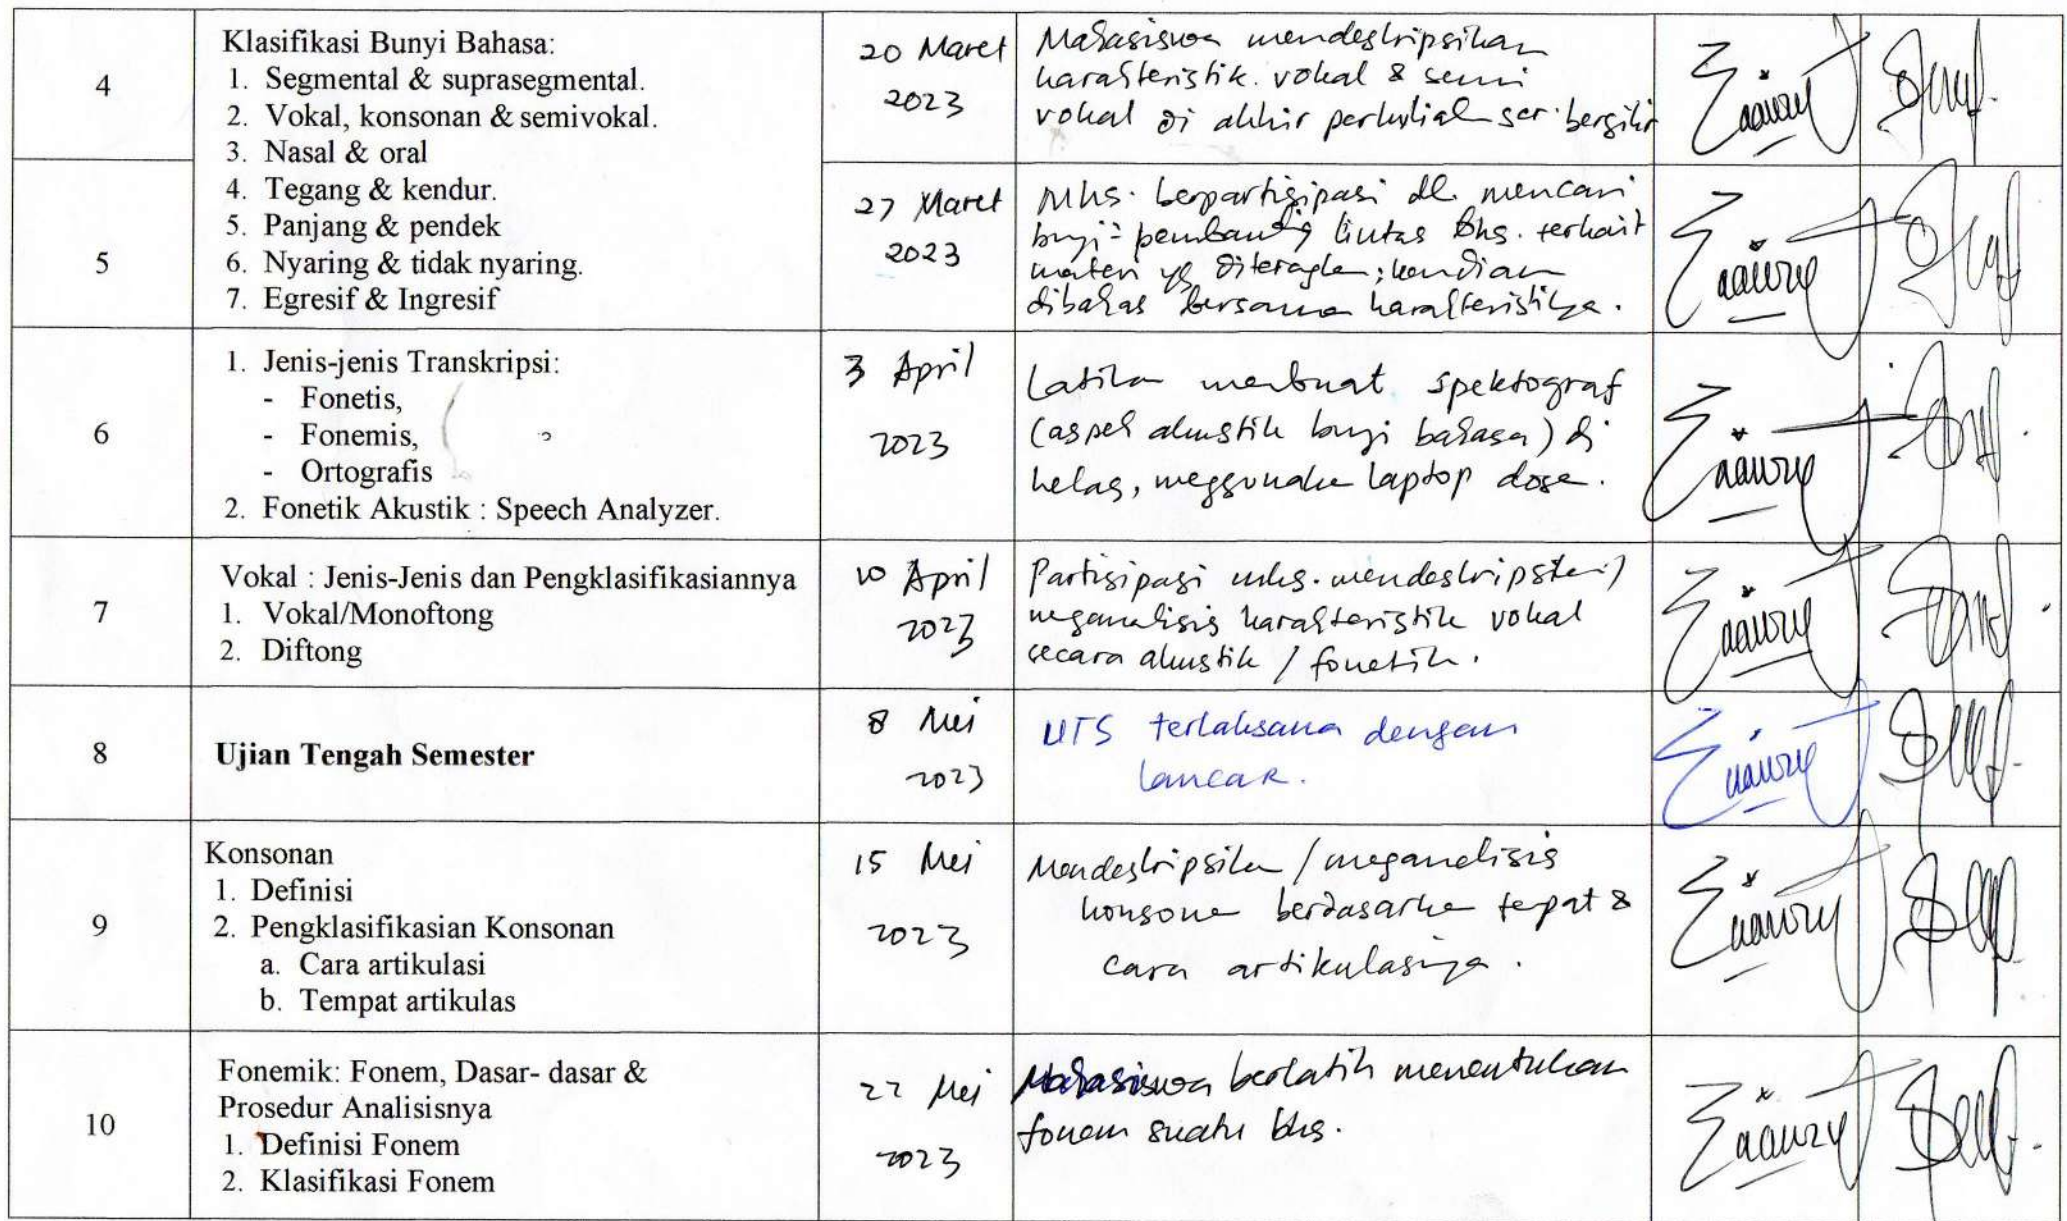 4
Klasifikasi Bunyi Bahasa:
1. Segmental & suprasegmental.
2. Vokal, konsonan & semivokal.
3. Nasal & oral
4. Tegang & kendur.
5. Panjang & pendek
6. Nyaring & tidak nyaring.
7. Egresif & Ingresif
20 Maret
2023
Mahasiswa mendeskripsikan
karakteristik vokal & semi
vokal di akhir perkuliah scr. bergilir
5
27 Maret
2023
Mhs. berpartisipasi dl. mencari
bunyi² pembanding lintas bhs. terkait
materi yg diterangkan; kemudian
dibahas bersama karakteristiknya.
6
1. Jenis-jenis Transkripsi:
- Fonetis,
- Fonemis,
- Ortografis
2. Fonetik Akustik : Speech Analyzer.
3 April
2023
Latihan membuat spektograf
(aspek akustik bunyi bahasa) di
kelas, menggunakan laptop dosen.
7
Vokal : Jenis-Jenis dan Pengklasifikasiannya
1. Vokal/Monoftong
2. Diftong
10 April
2023
Partisipasi mhs. mendeskripsikan/
menganalisis karakteristik vokal
secara akustik / fonetik.
8
Ujian Tengah Semester
8 Mei
2023
UTS terlaksana dengan
lancar.
9
Konsonan
1. Definisi
2. Pengklasifikasian Konsonan
a. Cara artikulasi
b. Tempat artikulas
15 Mei
2023
Mendeskripsikan / menganalisis
konsonan berdasarkan tempat &
cara artikulasinya.
10
Fonemik: Fonem, Dasar- dasar &
Prosedur Analisisnya
1. Definisi Fonem
2. Klasifikasi Fonem
22 Mei
2023
Mahasiswa berlatih menentukan
fonem suatu bhs.